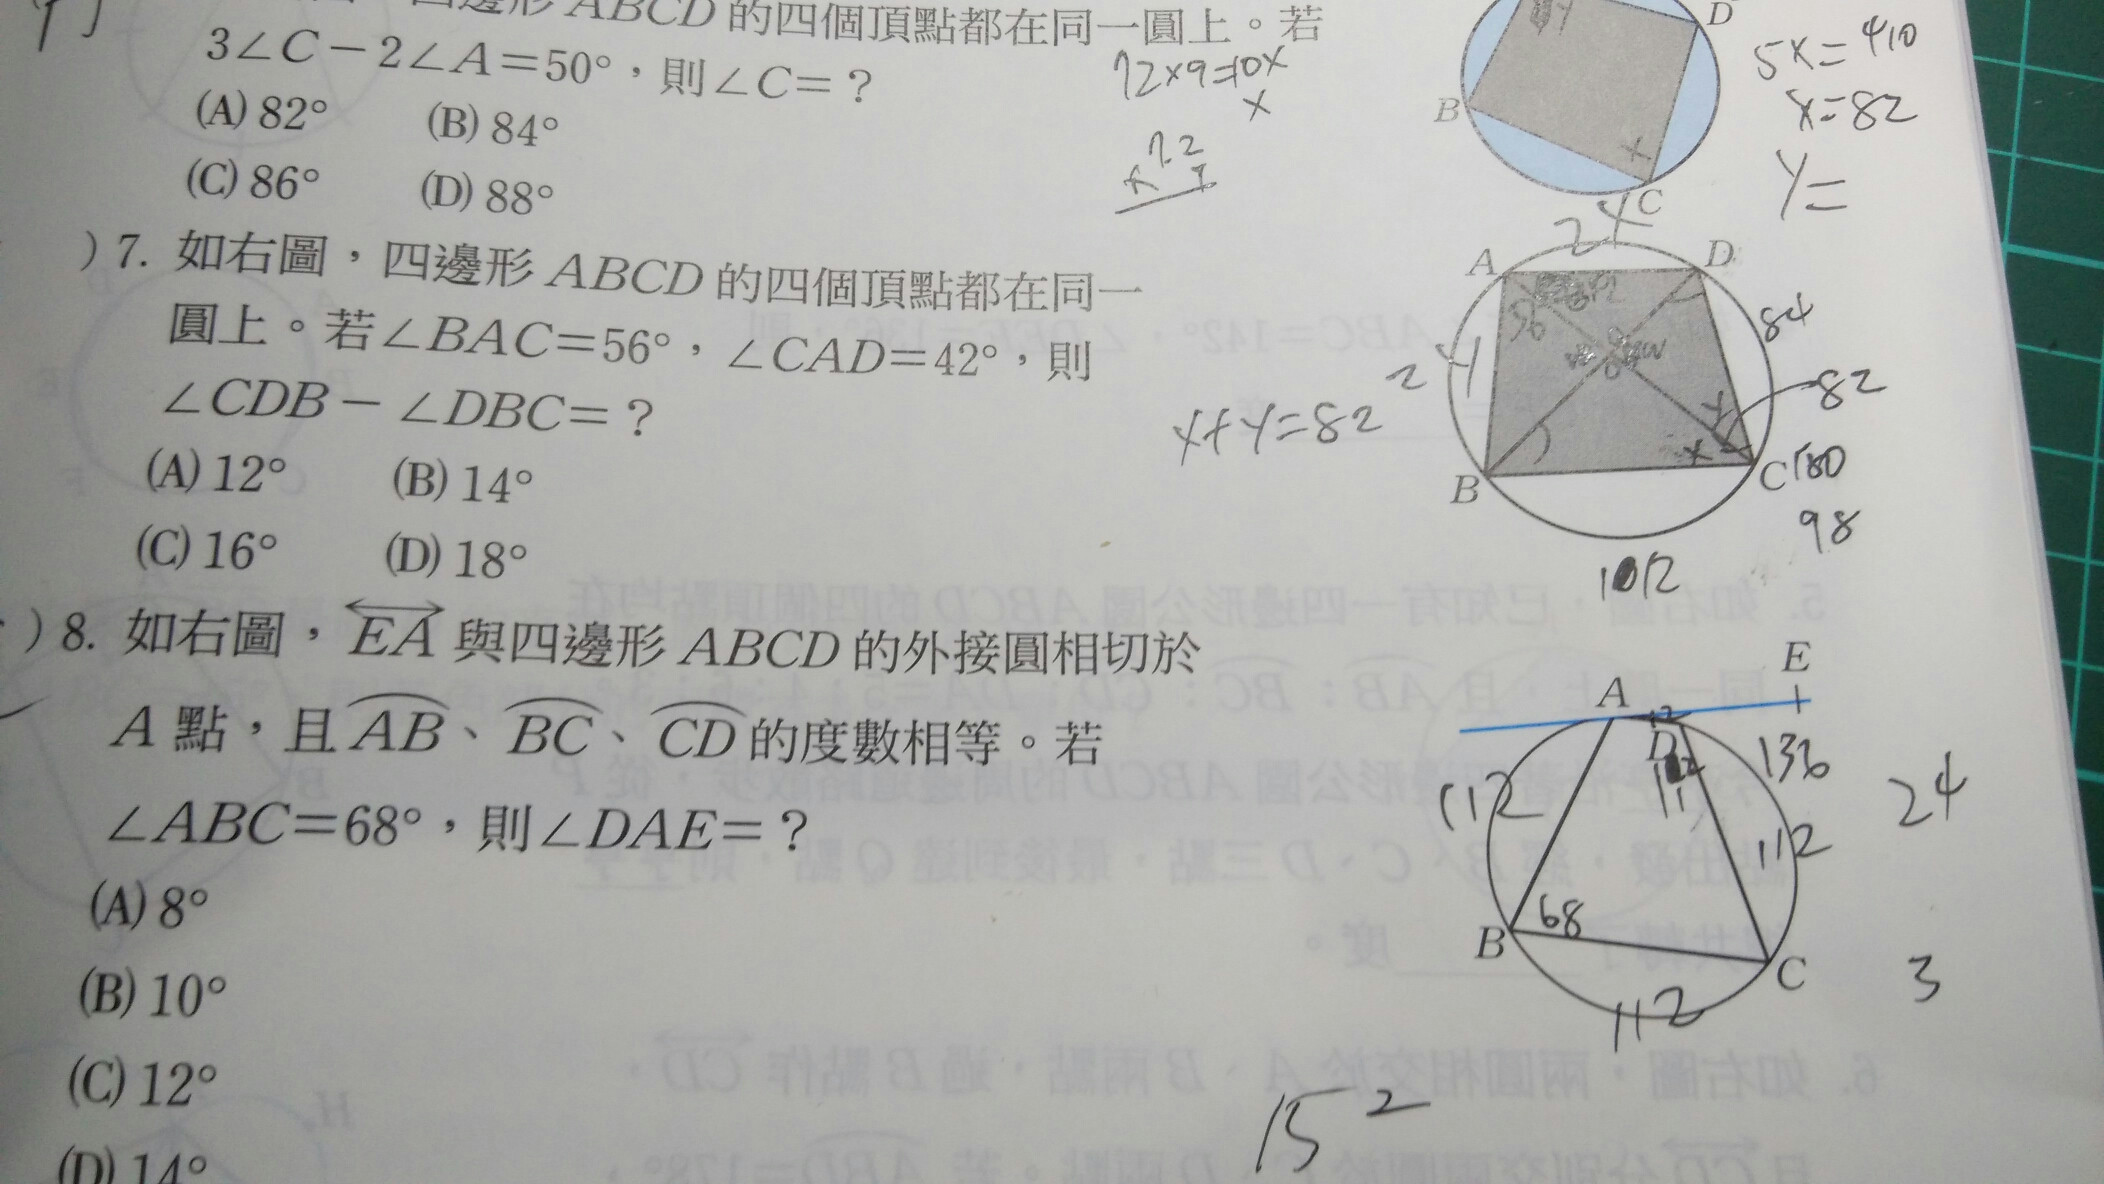 四邊形 ABCD 的四個頂點都在同一圓上。若
3∠C－2∠A＝50°，則∠C＝？
(A) 82° (B) 84°
(C) 86° (D) 88°
72×9=10x
x
7.2
B
C
D
x
Y
5x=410
x=82
Y=
) 7. 如右圖，四邊形 ABCD 的四個頂點都在同一
圓上。若∠BAC＝56°，∠CAD＝42°，則
∠CDB－∠DBC＝？
(A) 12° (B) 14°
(C) 16° (D) 18°
x+y=82
2Y
A
D
56
84
82
Y
x
B
C
180
98
) 8. 如右圖，EA 與四邊形 ABCD 的外接圓相切於
A 點，且 AB、BC、CD 的度數相等。若
∠ABC＝68°，則∠DAE＝？
(A) 8°
(B) 10°
(C) 12°
(D) 14°
E
A
D
136
112
112
24
68
B
C
112
3
15²